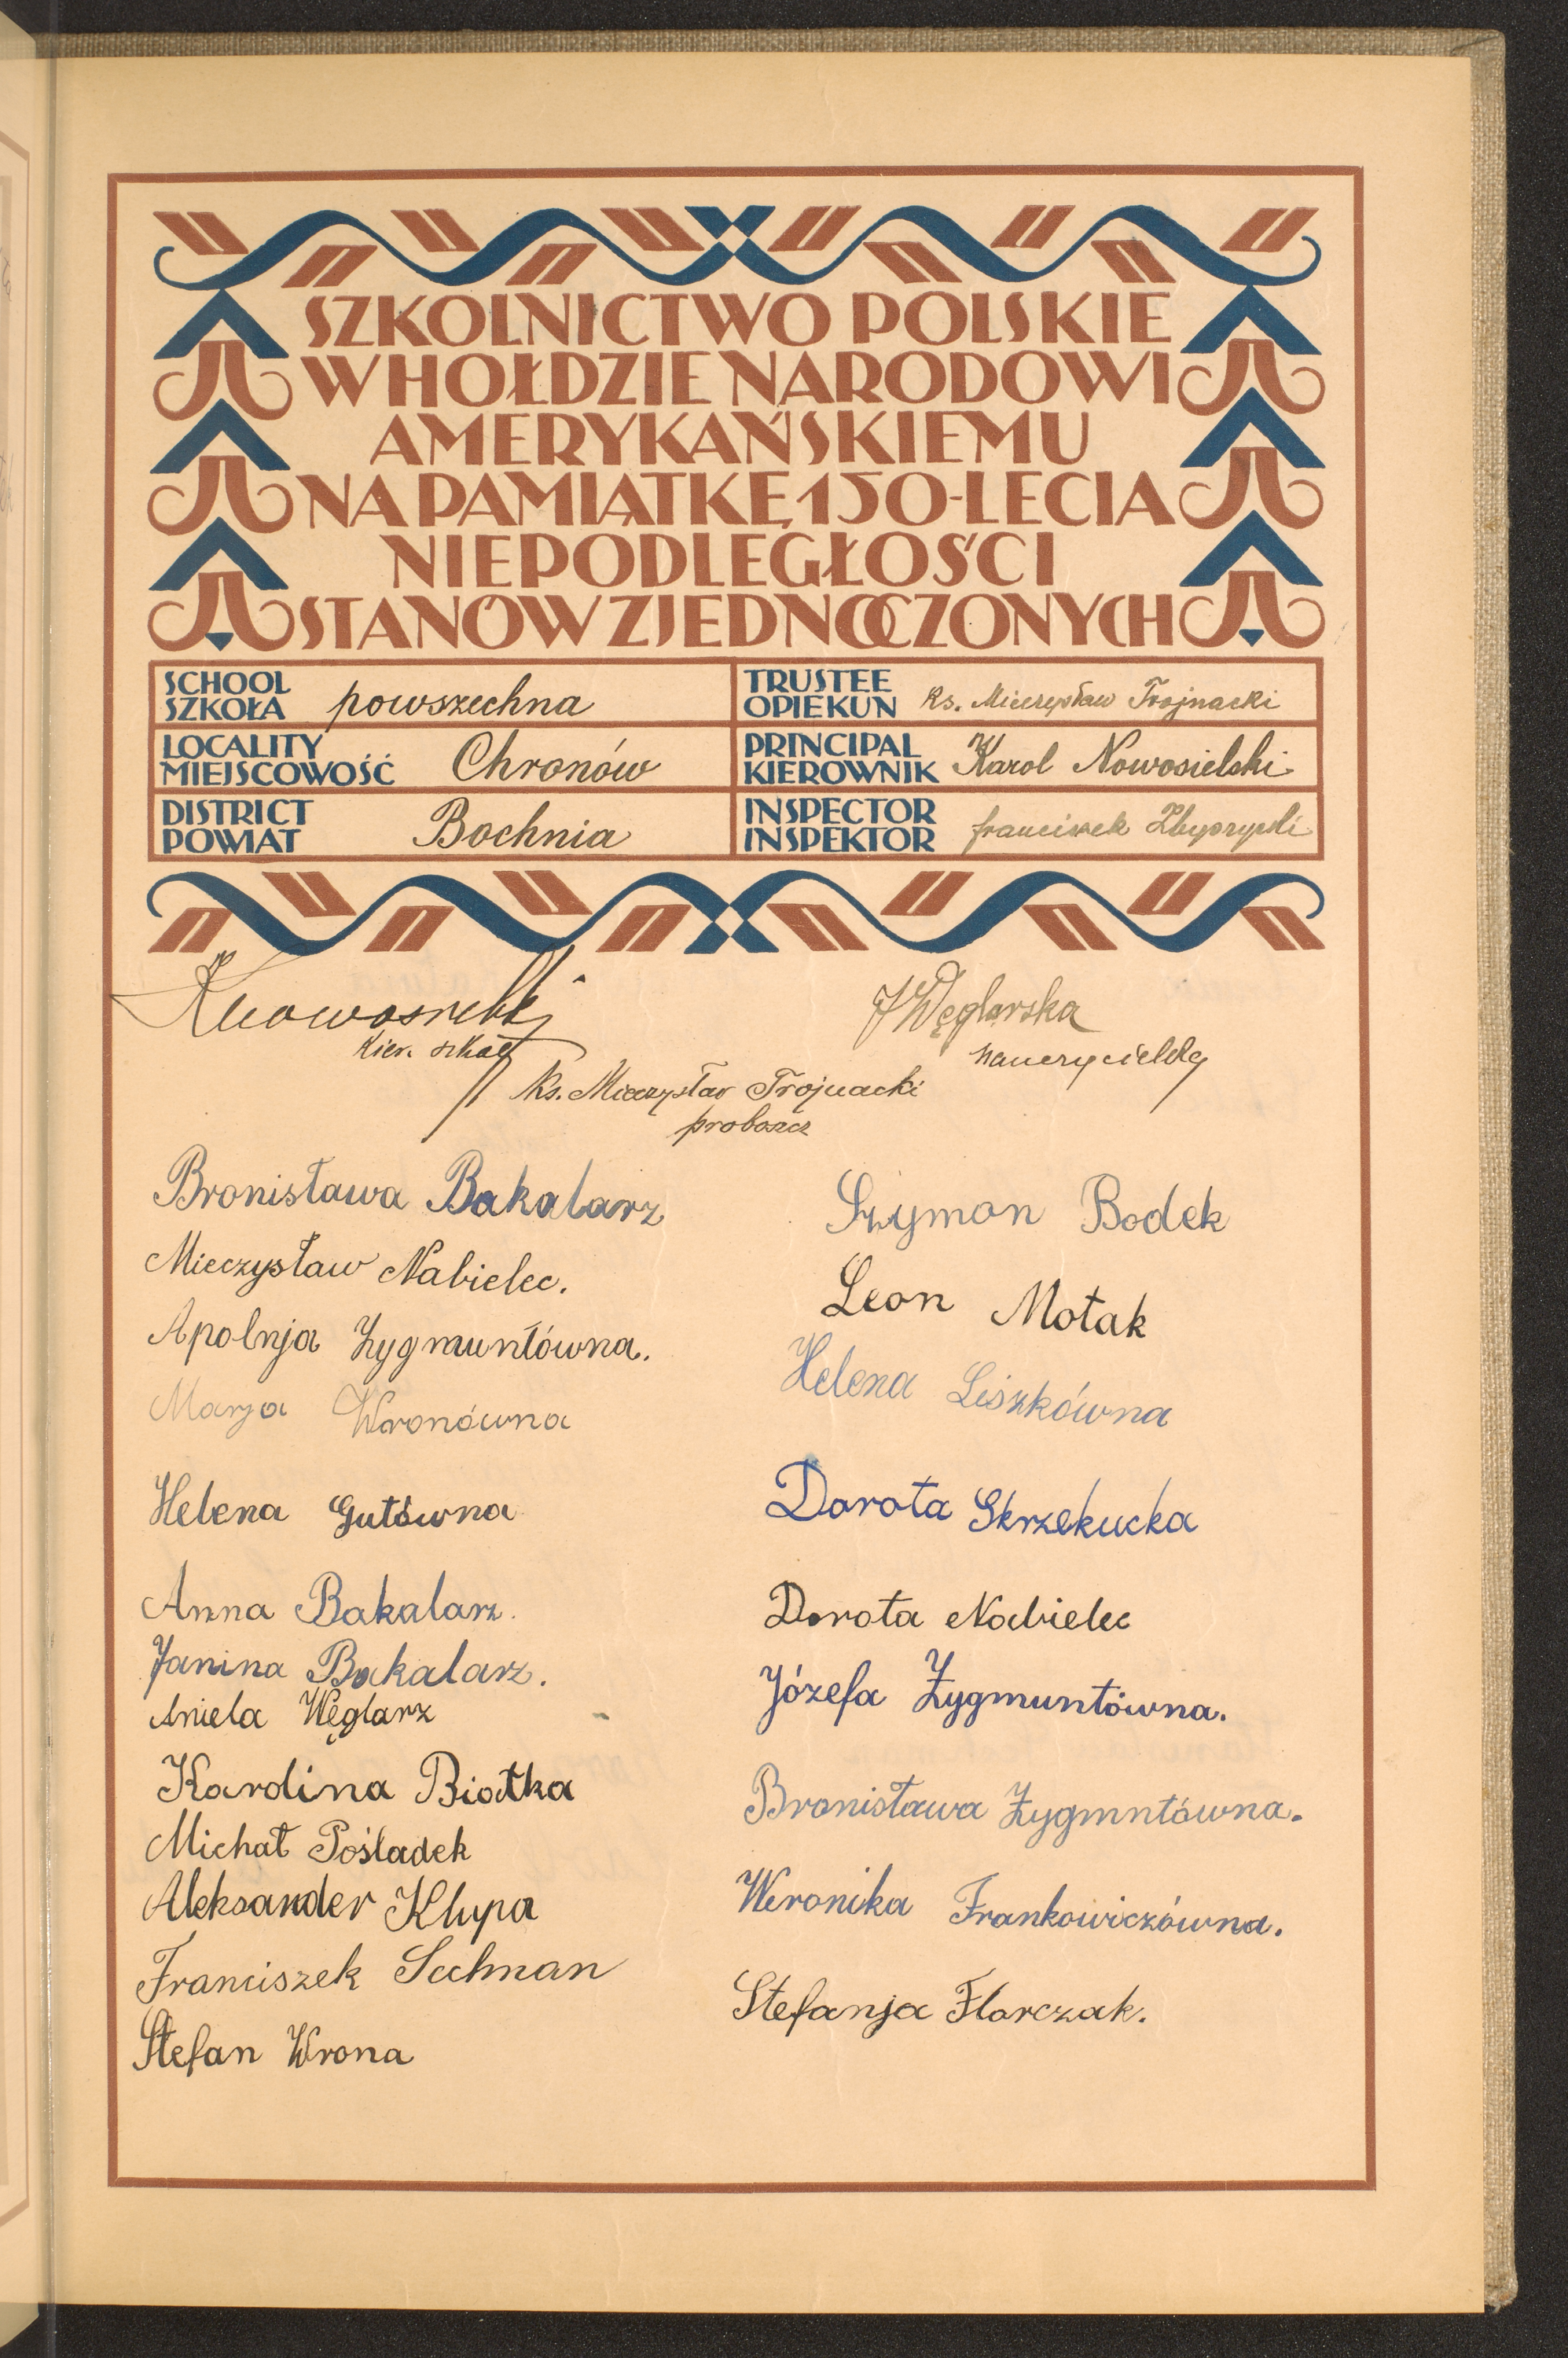 SZKOLNICTWO POLSKIE
W HOŁDZIE NARODOWI
AMERYKAŃSKIEMU
NA PAMIĄTKĘ 150-LECIA
NIEPODLEGŁOŚCI
STANÓW ZJEDNOCZONYCH
SCHOOL
SZKOŁA powszechna
TRUSTEE
OPIEKUN Ks. Mieczysław Trojnacki
LOCALITY
MIEJSCOWOŚĆ Chronów
PRINCIPAL
KIEROWNIK Karol Nowosielski
DISTRICT
POWIAT Bochnia
INSPECTOR
INSPEKTOR Franciszek
KNowosielski
kier. szkoły
J Węglarska
nauczycielka
Ks. Mieczysław Trojnacki
proboszcz
Bronisława Bakalarz
Mieczysław Nabielec.
Apolnja Zygmuntówna.
Marja Wronówna
Helena Gutówna
Anna Bakalarz.
Janina Bakalarz.
Aniela Węglarz
Karolina Białka
Michał Pośladek
Aleksander Klupa
Franciszek Sechman
Stefan Wrona
Szymon Bodek
Leon Motak
Helena Liszkówna
Dorota Skrzekucka
Dorota Nabielec
Józefa Zygmuntówna.
Bronisława Zygmntówna.
Weronika Frankowiczówna.
Stefanja Florczak.